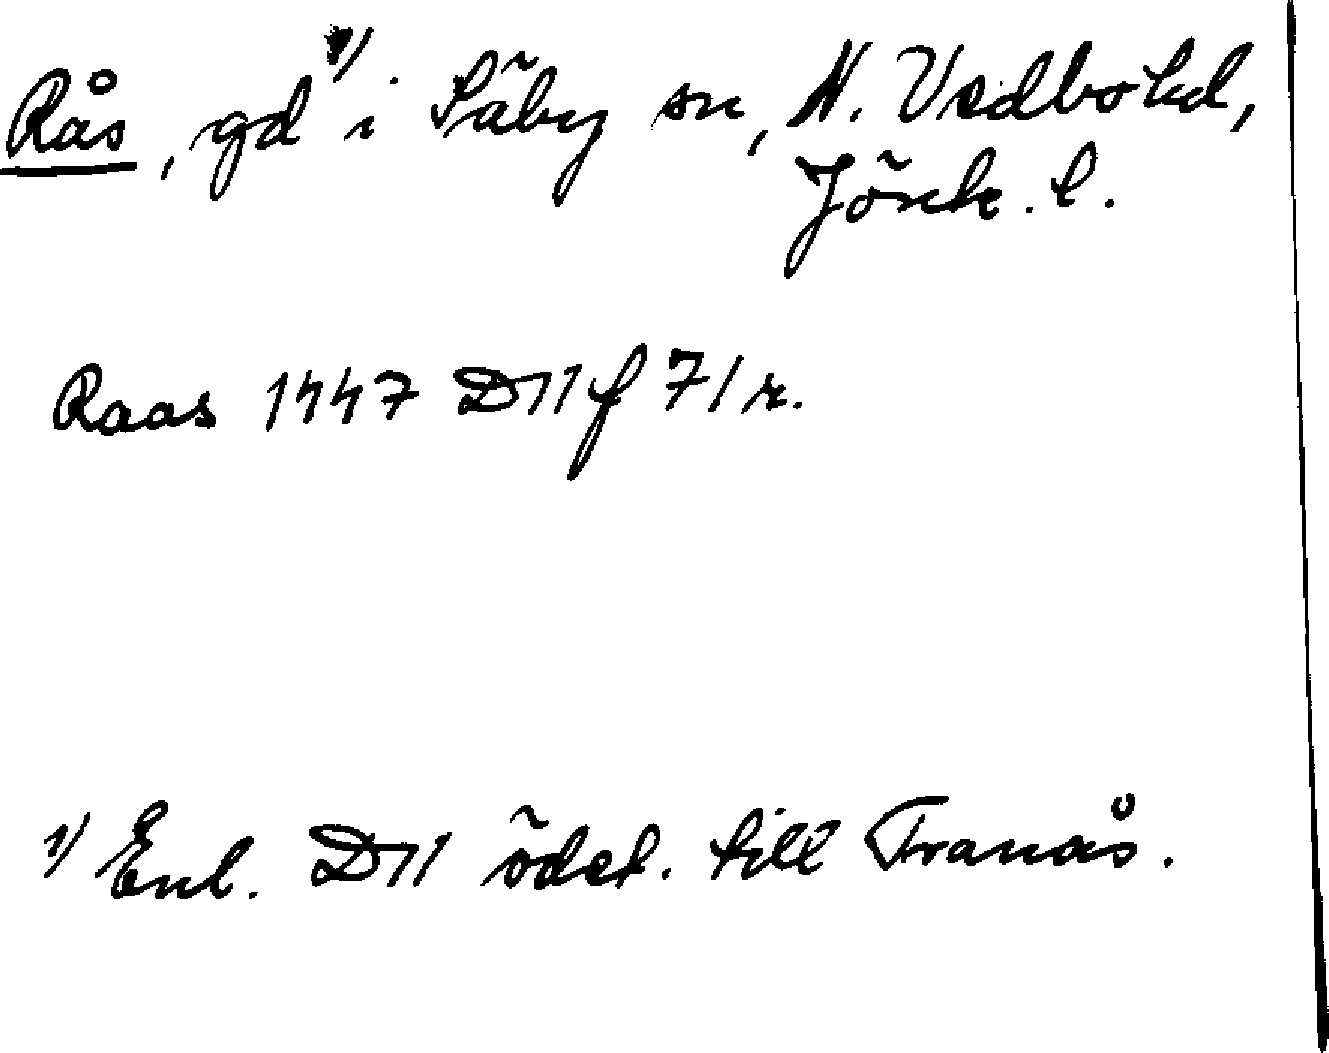 Rås, gd 1) i Säby sn, N. Vedbo hd,
Jönk. l.
Raas 1447 D11 f 71 r.
1) Enl. D11 ödet. till Tranås.